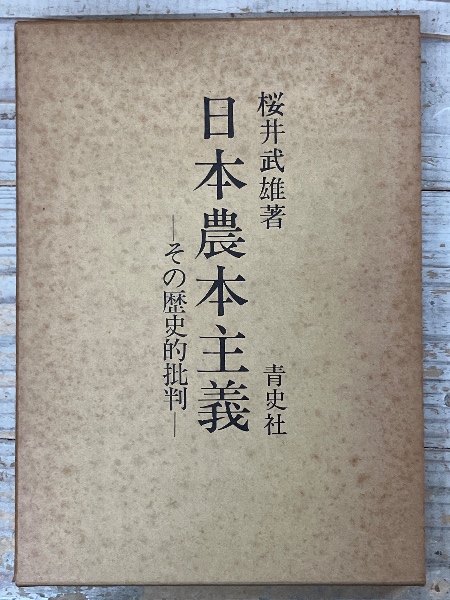 桜井武雄著
日本農本主義
―その歴史的批判―
青史社